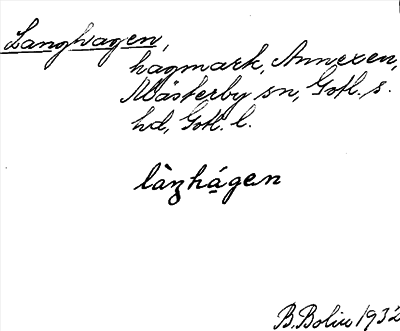 Langhagen,
hagmark, Annexen,
Mästerby sn, Gotl. s.
hd, Gotl. l.
làŋhágen
B. Bolin 1932